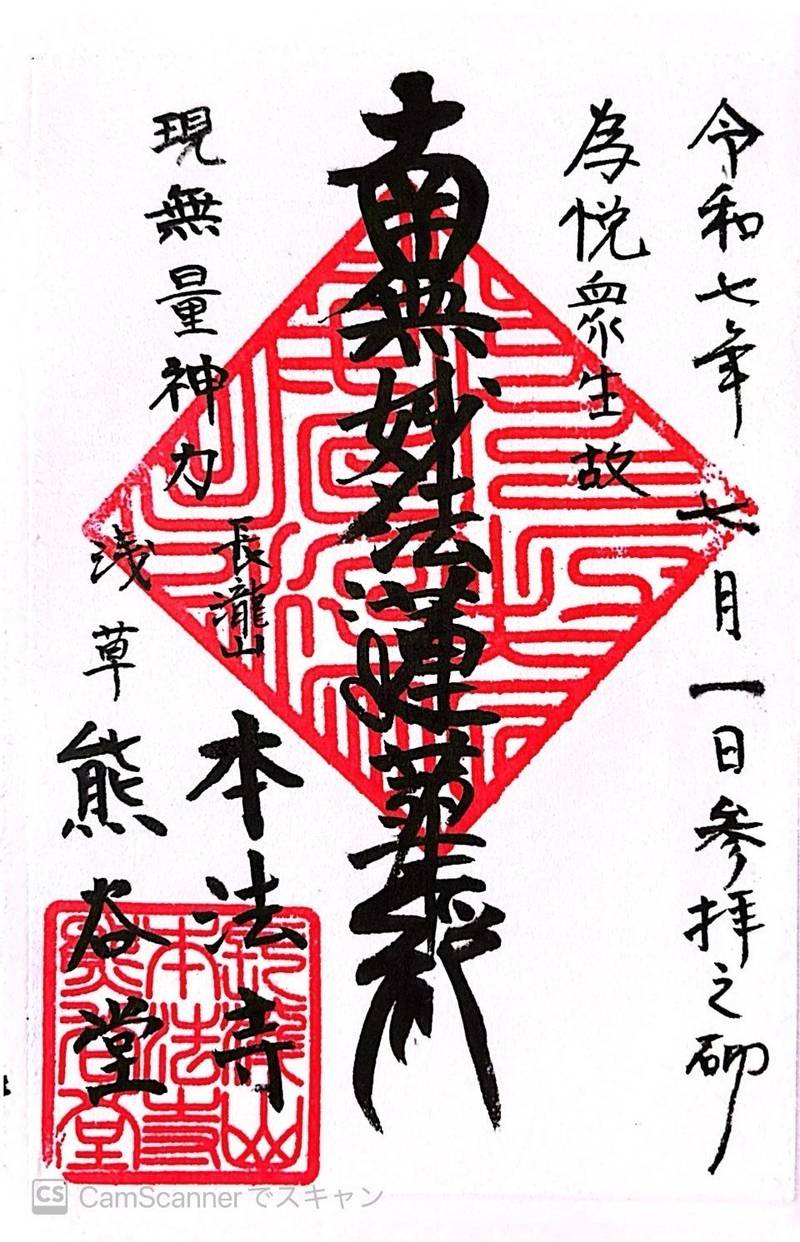 令和七年七月一日参拝之砌
為悦衆生故
南無妙法蓮華経
現無量神力
長瀧山
本法寺
浅草
熊谷堂
長瀧山
本法寺
熊谷堂
CS CamScanner でスキャン